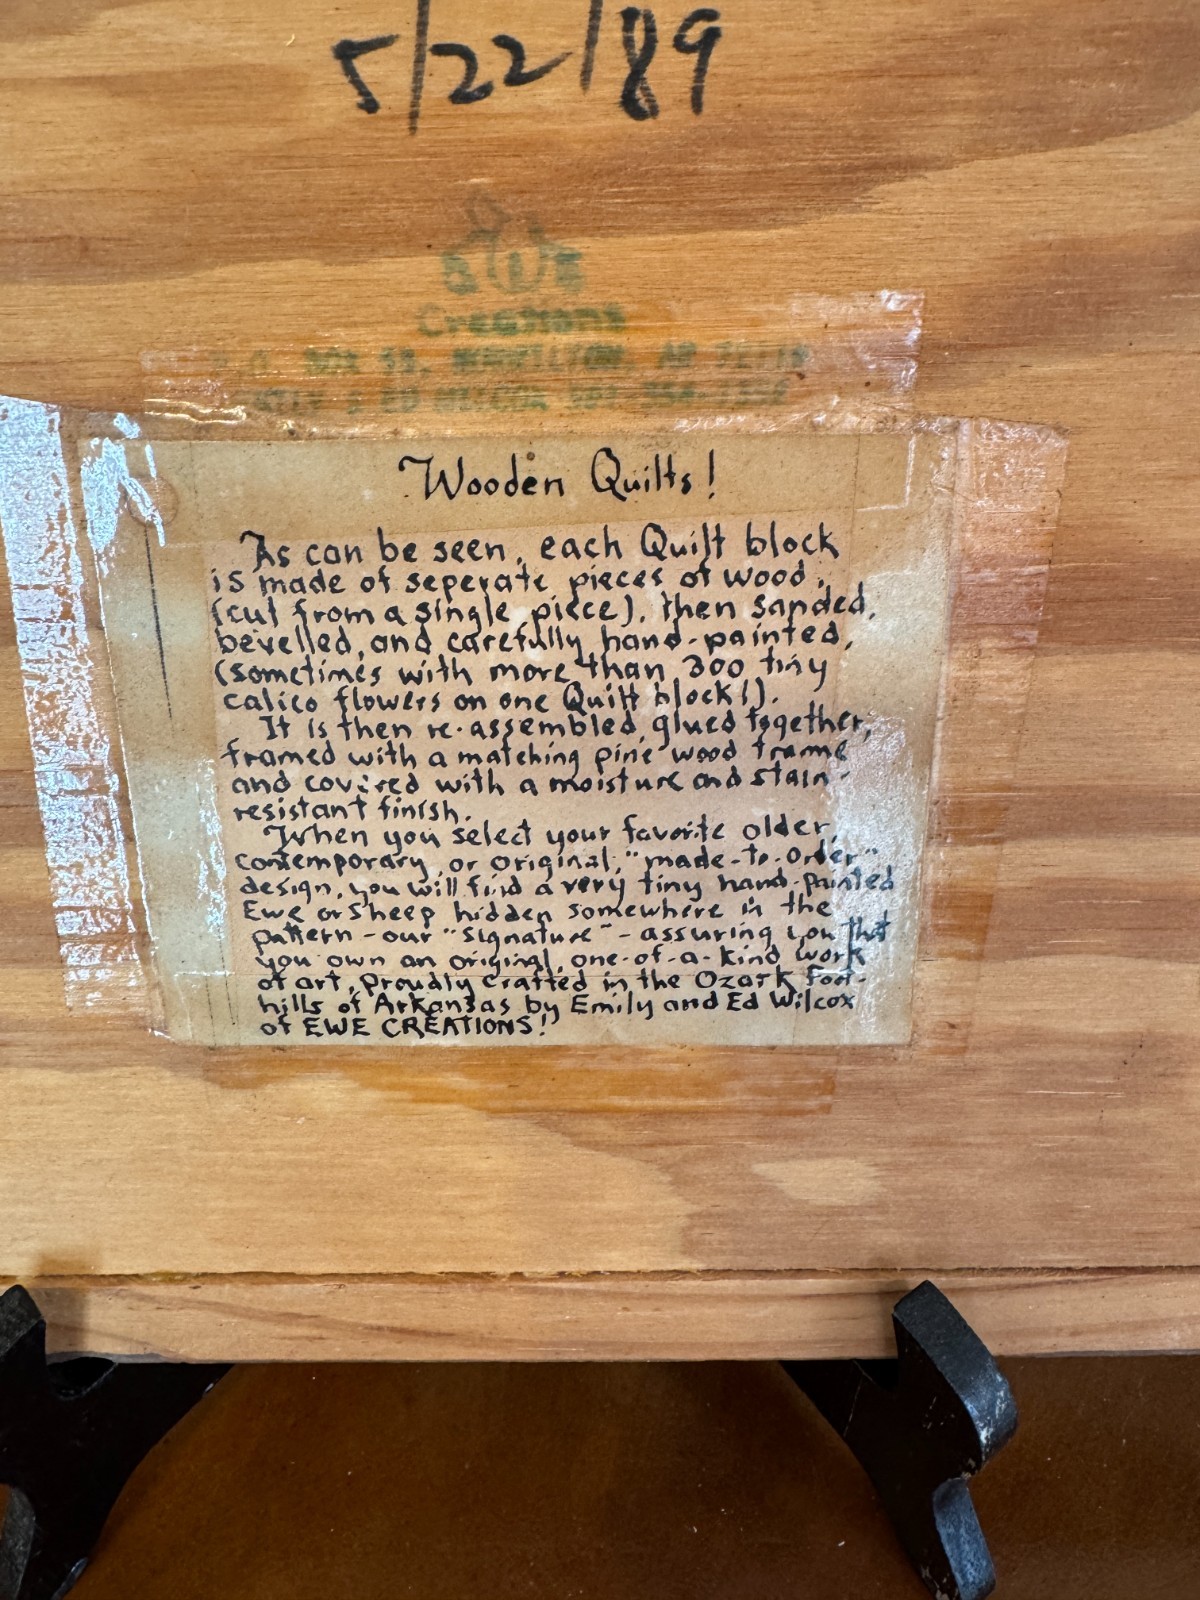 5/22/89
Creations
Wooden Quilts!
As can be seen, each Quilt block
is made of seperate pieces of wood,
(cut from a single piece), then sanded,
bevelled, and carefully hand-painted,
(sometimes with more than 300 tiny
calico flowers on one Quilt block!).
It is then re-assembled, glued together,
framed with a matching pine wood frame
and covered with a moisture and stain-
resistant finish.
When you select your favorite older,
contemporary, or original, "made-to-order"
design, you will find a very tiny hand-painted
Ewe or Sheep hidden somewhere in the
pattern - our "signature" - assuring you that
you own an original, one-of-a-kind work
of art, proudly crafted in the Ozark Foot-
hills of Arkansas by Emily and Ed Wilcox
of EWE CREATIONS!